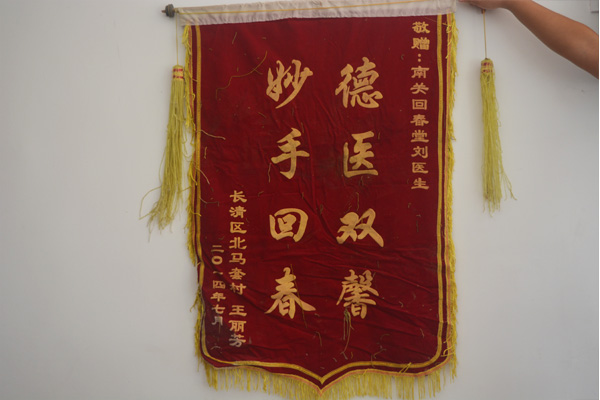 敬赠：南关回春堂刘医生
德医双馨
妙手回春
长清区北马套村 王丽芳
二〇一四年七月